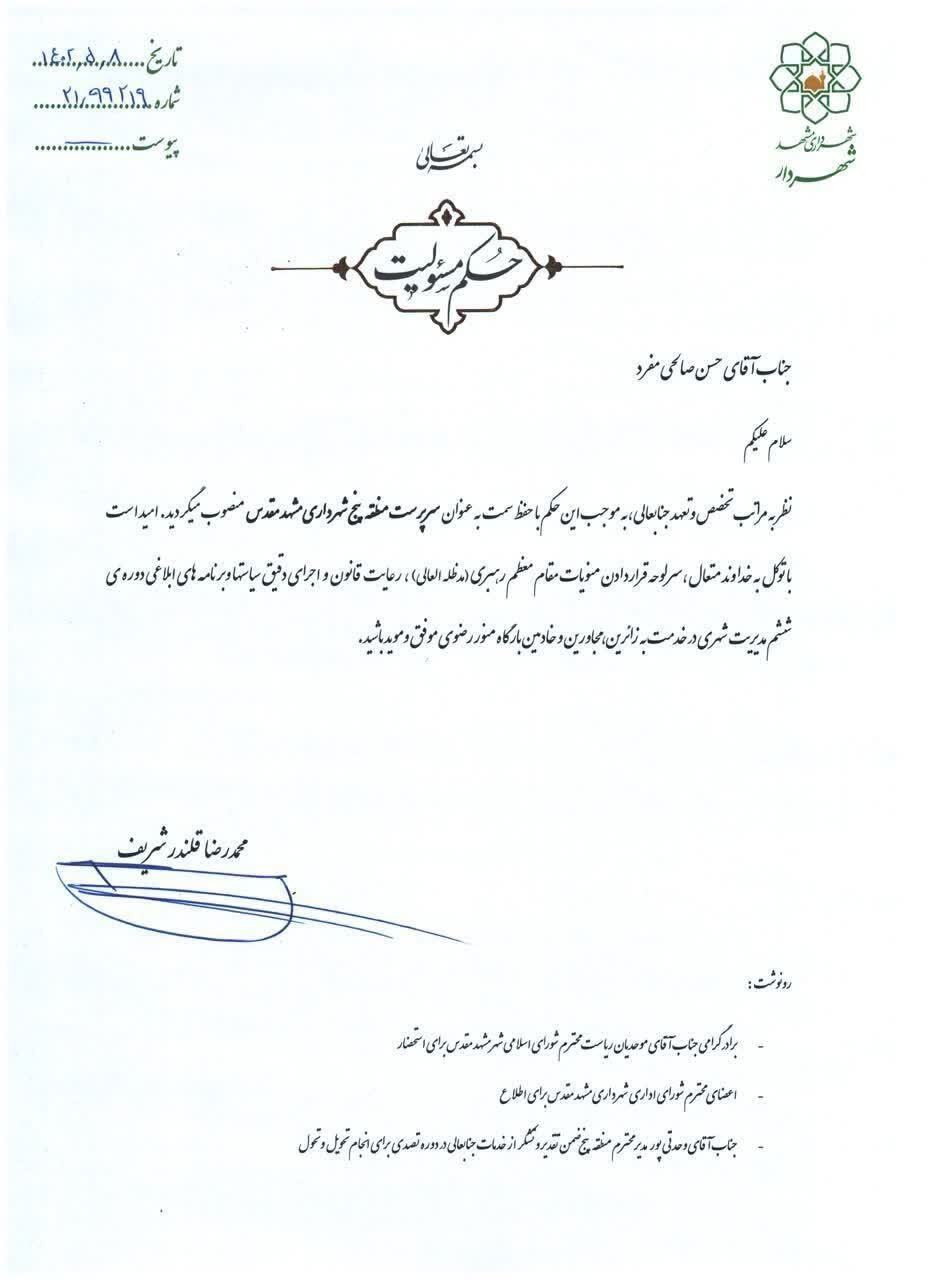 تاریخ ۱۴۰۲,۵,۸
شماره ۲۱,۹۹۲۱۹
پیوست
شهرداری مشهد
شهردار
بسمه تعالی
حکم مسئولیت
جناب آقای حسن صالحی مفرد
سلام علیکم
نظر به مراتب تخصص و تعهد جنابعالی، به موجب این حکم با حفظ سمت به عنوان سرپرست منطقه پنج شهرداری مشهد مقدس منصوب میگردید. امید است
با توکل به خداوند متعال، سرلوحه قرار دادن منویات مقام معظم رهبری (مدظله العالی)، رعایت قانون و اجرای دقیق سیاستها و برنامه های ابلاغی دوره ی
ششم مدیریت شهری در خدمت به زائرین، مجاورین و خادمین بارگاه منور رضوی موفق و موید باشید.
محمدرضا قلندر شریف
رونوشت:
- برادر گرامی جناب آقای موحدیان ریاست محترم شورای اسلامی شهر مشهد مقدس برای استحضار
- اعضای محترم شورای اداری شهرداری مشهد مقدس برای اطلاع
- جناب آقای وحدتی پور مدیر محترم منطقه پنج ضمن تقدیر و تشکر از خدمات جنابعالی در دوره تصدی برای انجام تحویل و تحول